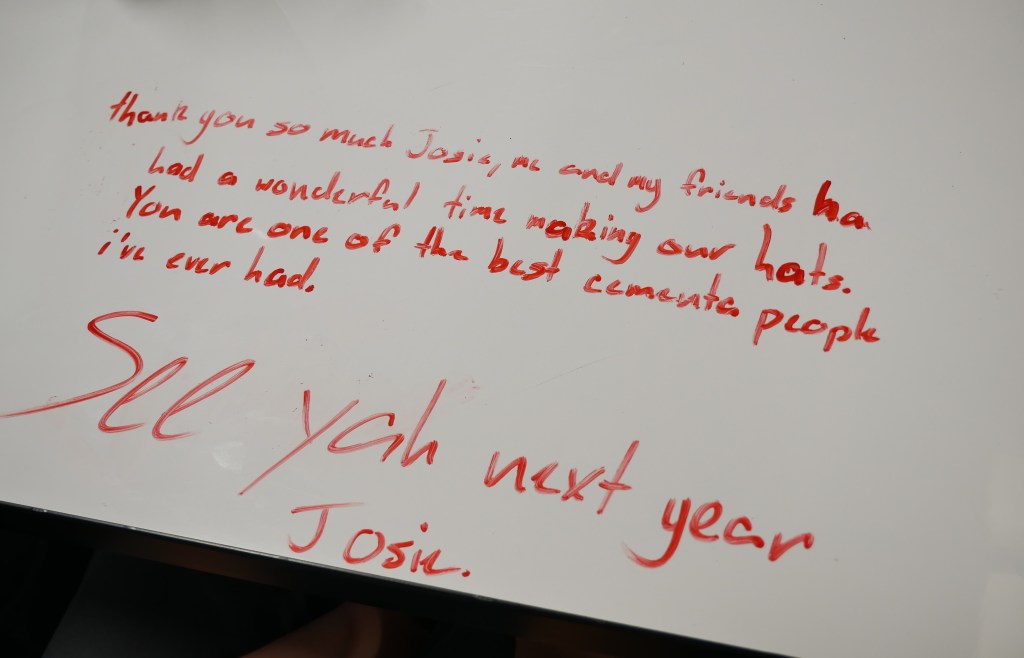 thank you so much Josie, me and my friends ha
had a wonderful time making our hats.
You are one of the best cementa people
i've ever had.
See yah next year
Josie.